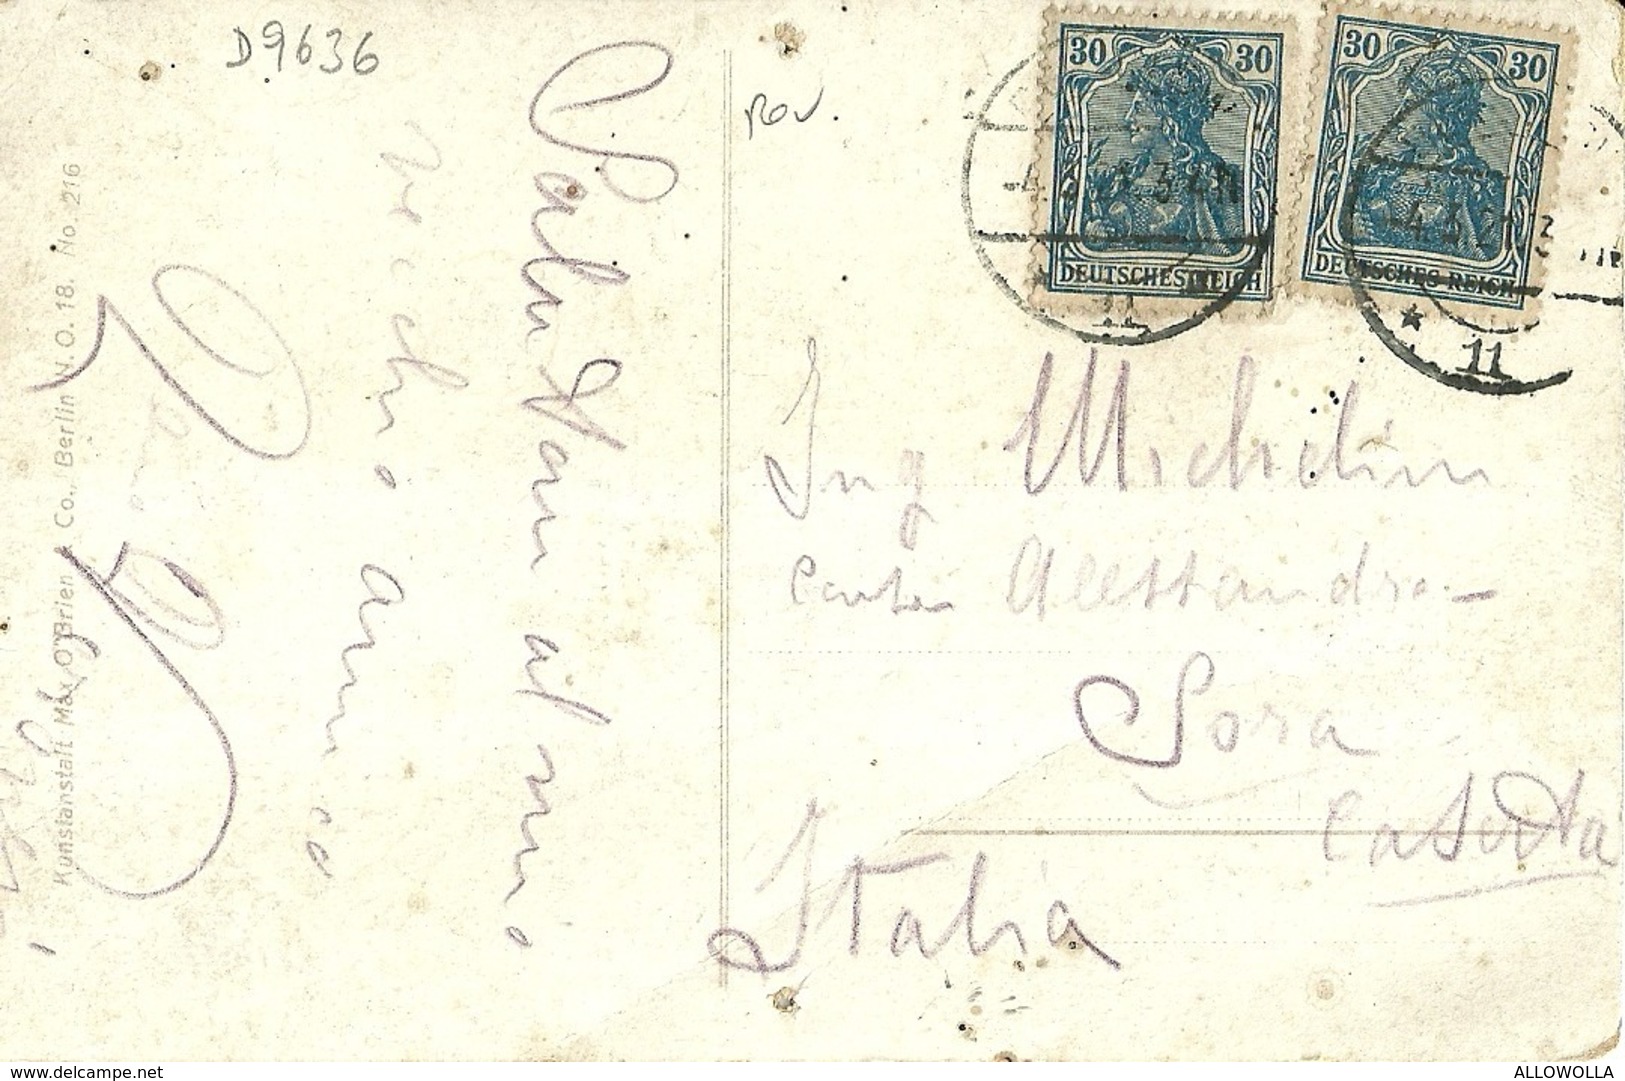 D9636
Rov.
30 30
DEUTSCHES REICH
30 30
DEUTSCHES REICH
11
* 11
Kunstanstalt Max O'Brien & Co., Berlin N. O. 18. No. 216
Salutoni al mio
vecchio amico
Ing Michelini
Alessandro-
Sora
Caserta
Italia
delcampe.net
ALLOWOLLA